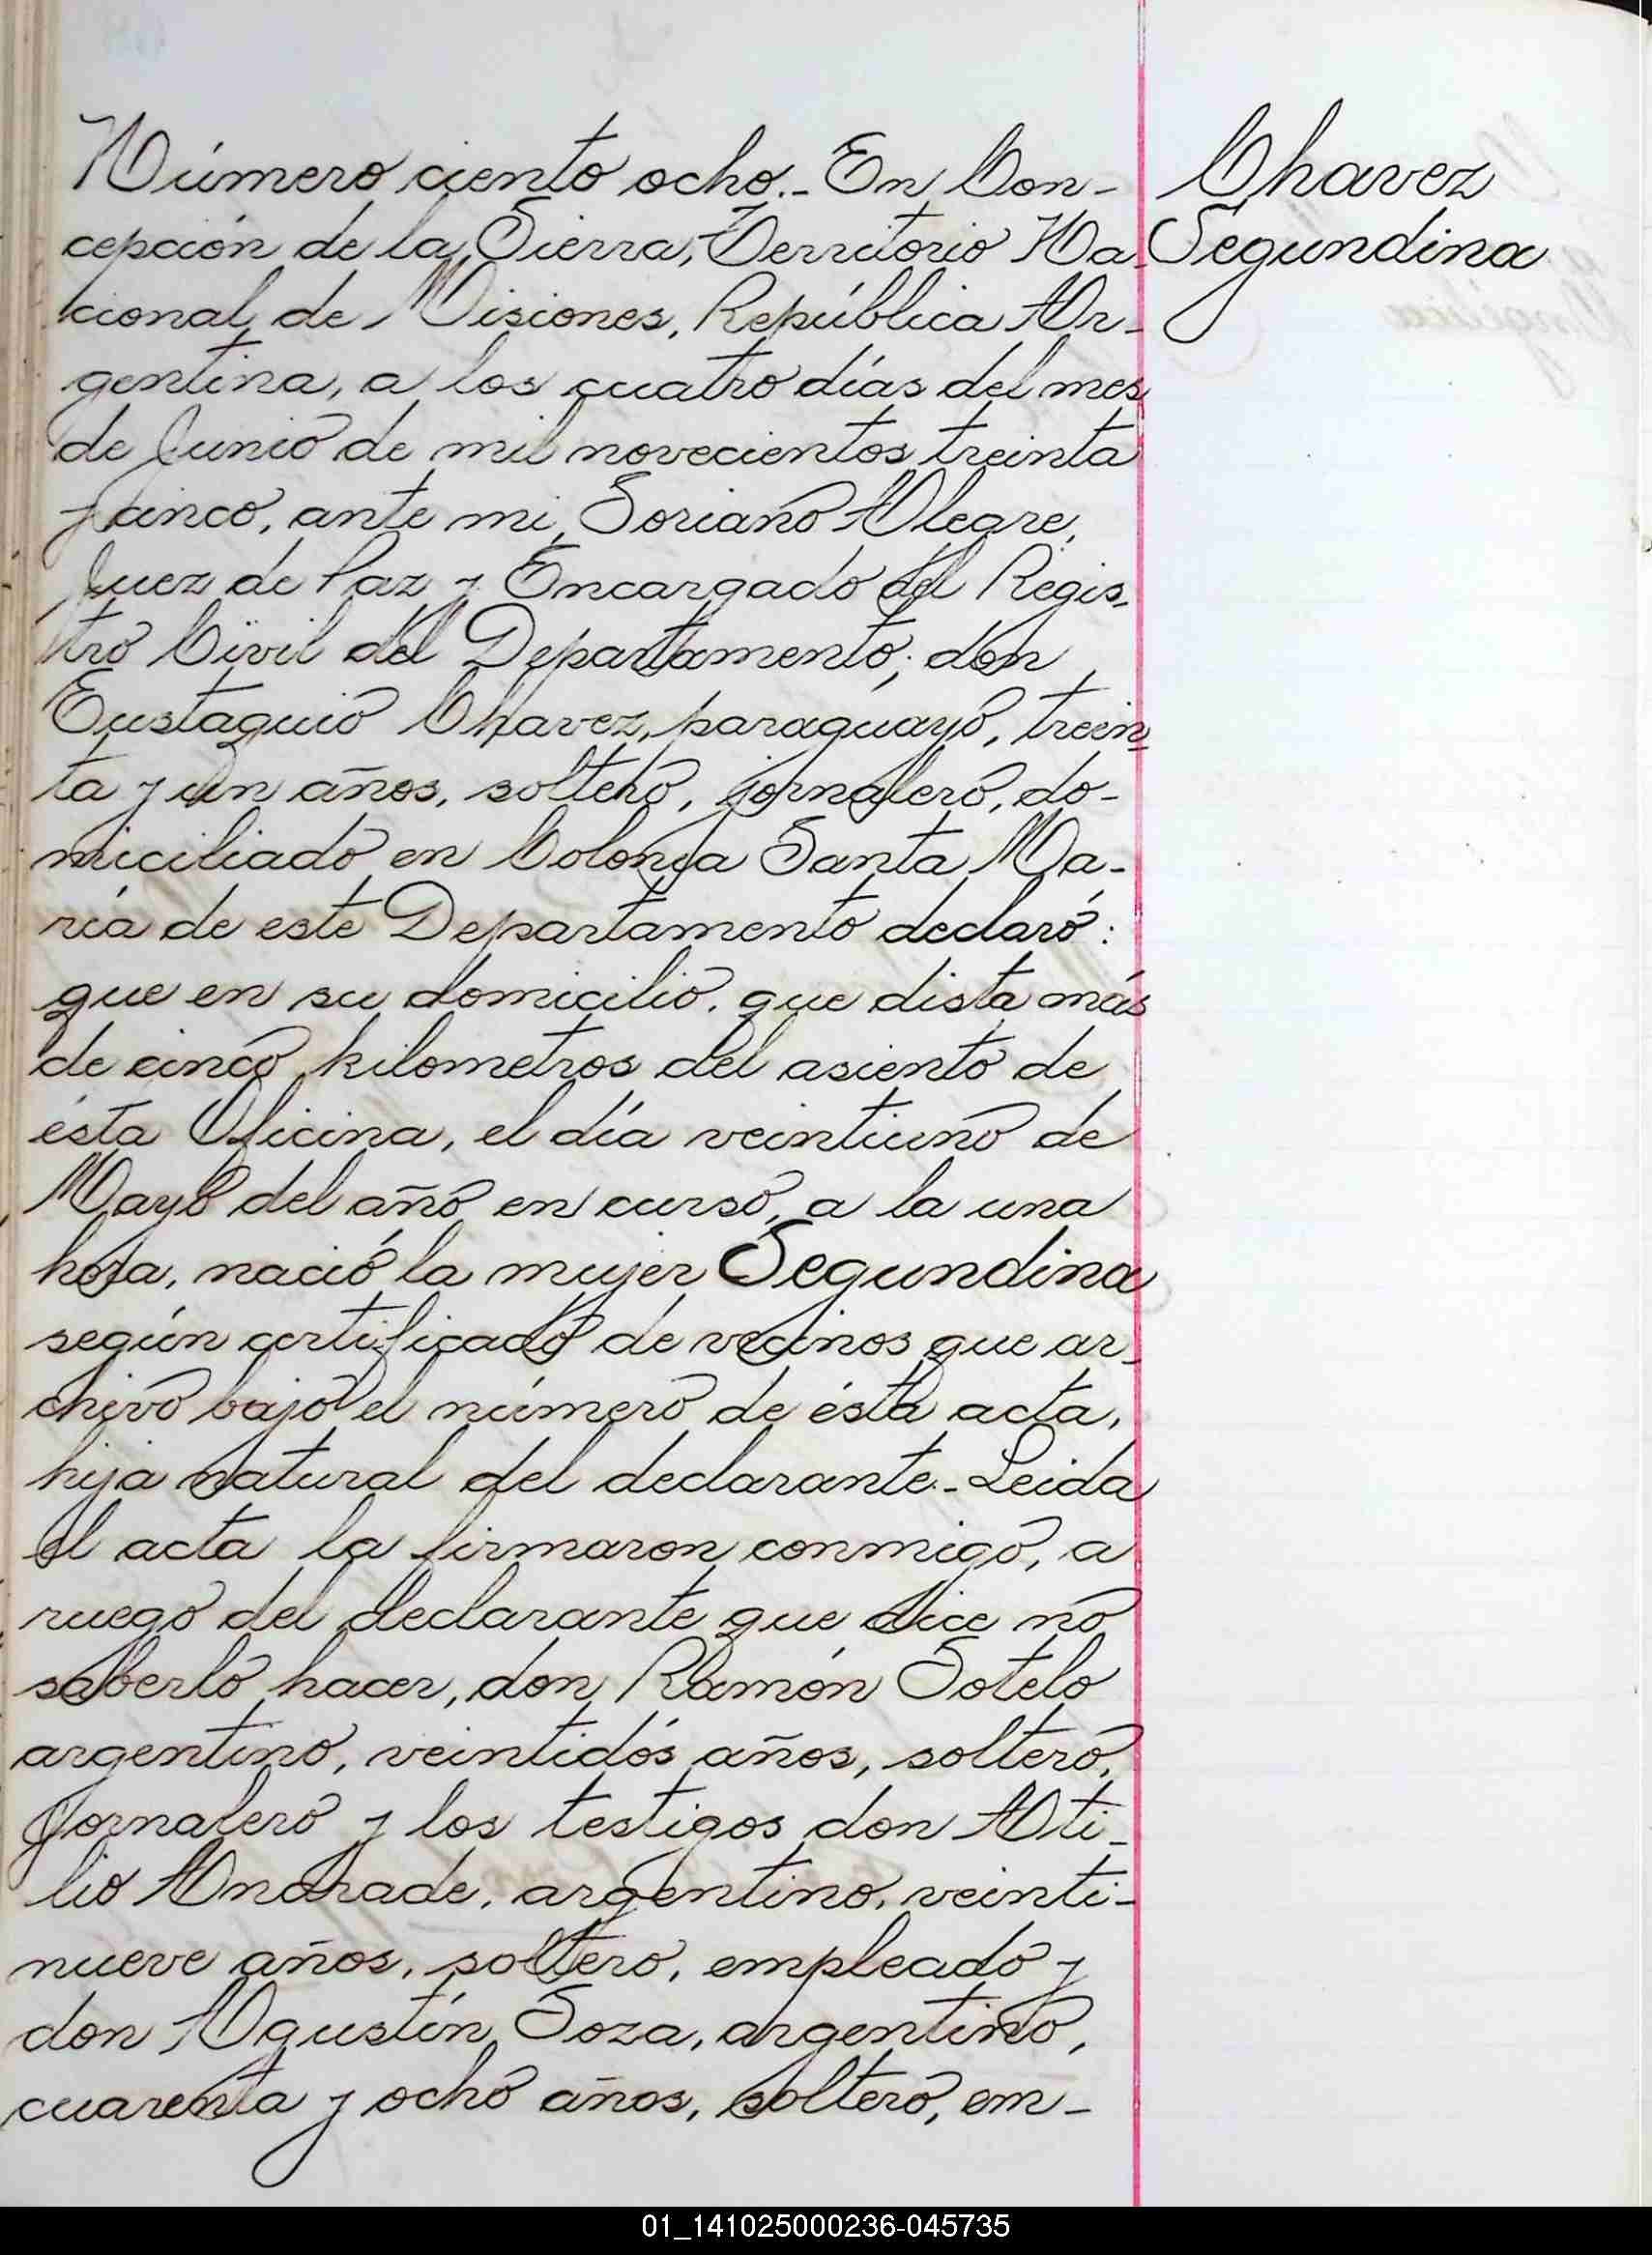 Número ciento ocho.- En Con-
cepción de la Sierra, Territorio Na-
cional de Misiones, República Ar-
gentina, a los cuatro días del mes
de Junio de mil novecientos treinta
y cinco, ante mi, Soriano Alegre,
Juez de Paz y Encargado del Regis-
tro Civil del Departamento; don
Eustaquio Chavez, paraguayo, trein-
ta y un años, soltero, jornalero, do-
miciliado en Colonia Santa Ma-
ría de este Departamento declaró:
que en su domicilio, que dista más
de cinco kilometros del asiento de
ésta Oficina, el día veintiuno de
Mayo del año en curso, a la una
hora, nació la mujer Segundina
según certificado de vecinos que ar-
chivo bajo el número de ésta acta,
hija natural del declarante.- Leida
el acta la firmaron conmigo, a
ruego del declarante que dice no
saberlo hacer, don Ramón Sotelo
argentino, veintidós años, soltero,
jornalero y los testigos don Ati-
lio Andrade, argentino, veinti-
nueve años, soltero, empleado y
don Agustín Soza, argentino,
cuarenta y ocho años, soltero, em-
Chavez
Segundina
01_141025000236-045735